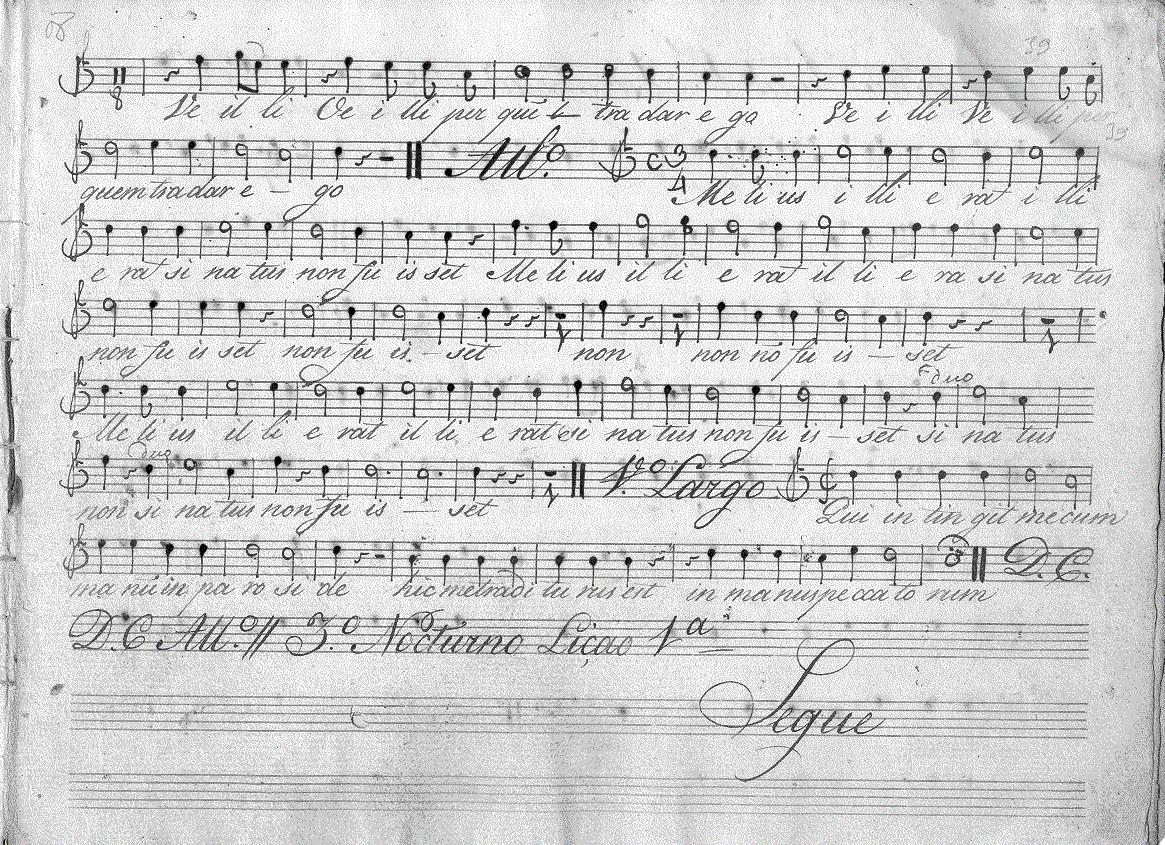 39
Ve il li Ve i lli per quē tradar e go Ve i lli Ve i lli per
39
quem tradar e - go All.º 3 4 Me li us i lli e rat i lli
e rat si na tus non fu is set Me li us il li e rat il li e ra si na tus
non fu is set non fu is - set non non no fu is - set
Duo
Me li us il li e rat il li e rat si na tus non fu is - set si na tus
Duo
non si na tus non fu is - set V.º Largo Qui in tin git mecum
ma nu in pa ro si de hic me tradi tu rus est in ma nus pecca to rum D. C.
D. C. All.º // 3.º Nocturno Liçao 1ª
Segue